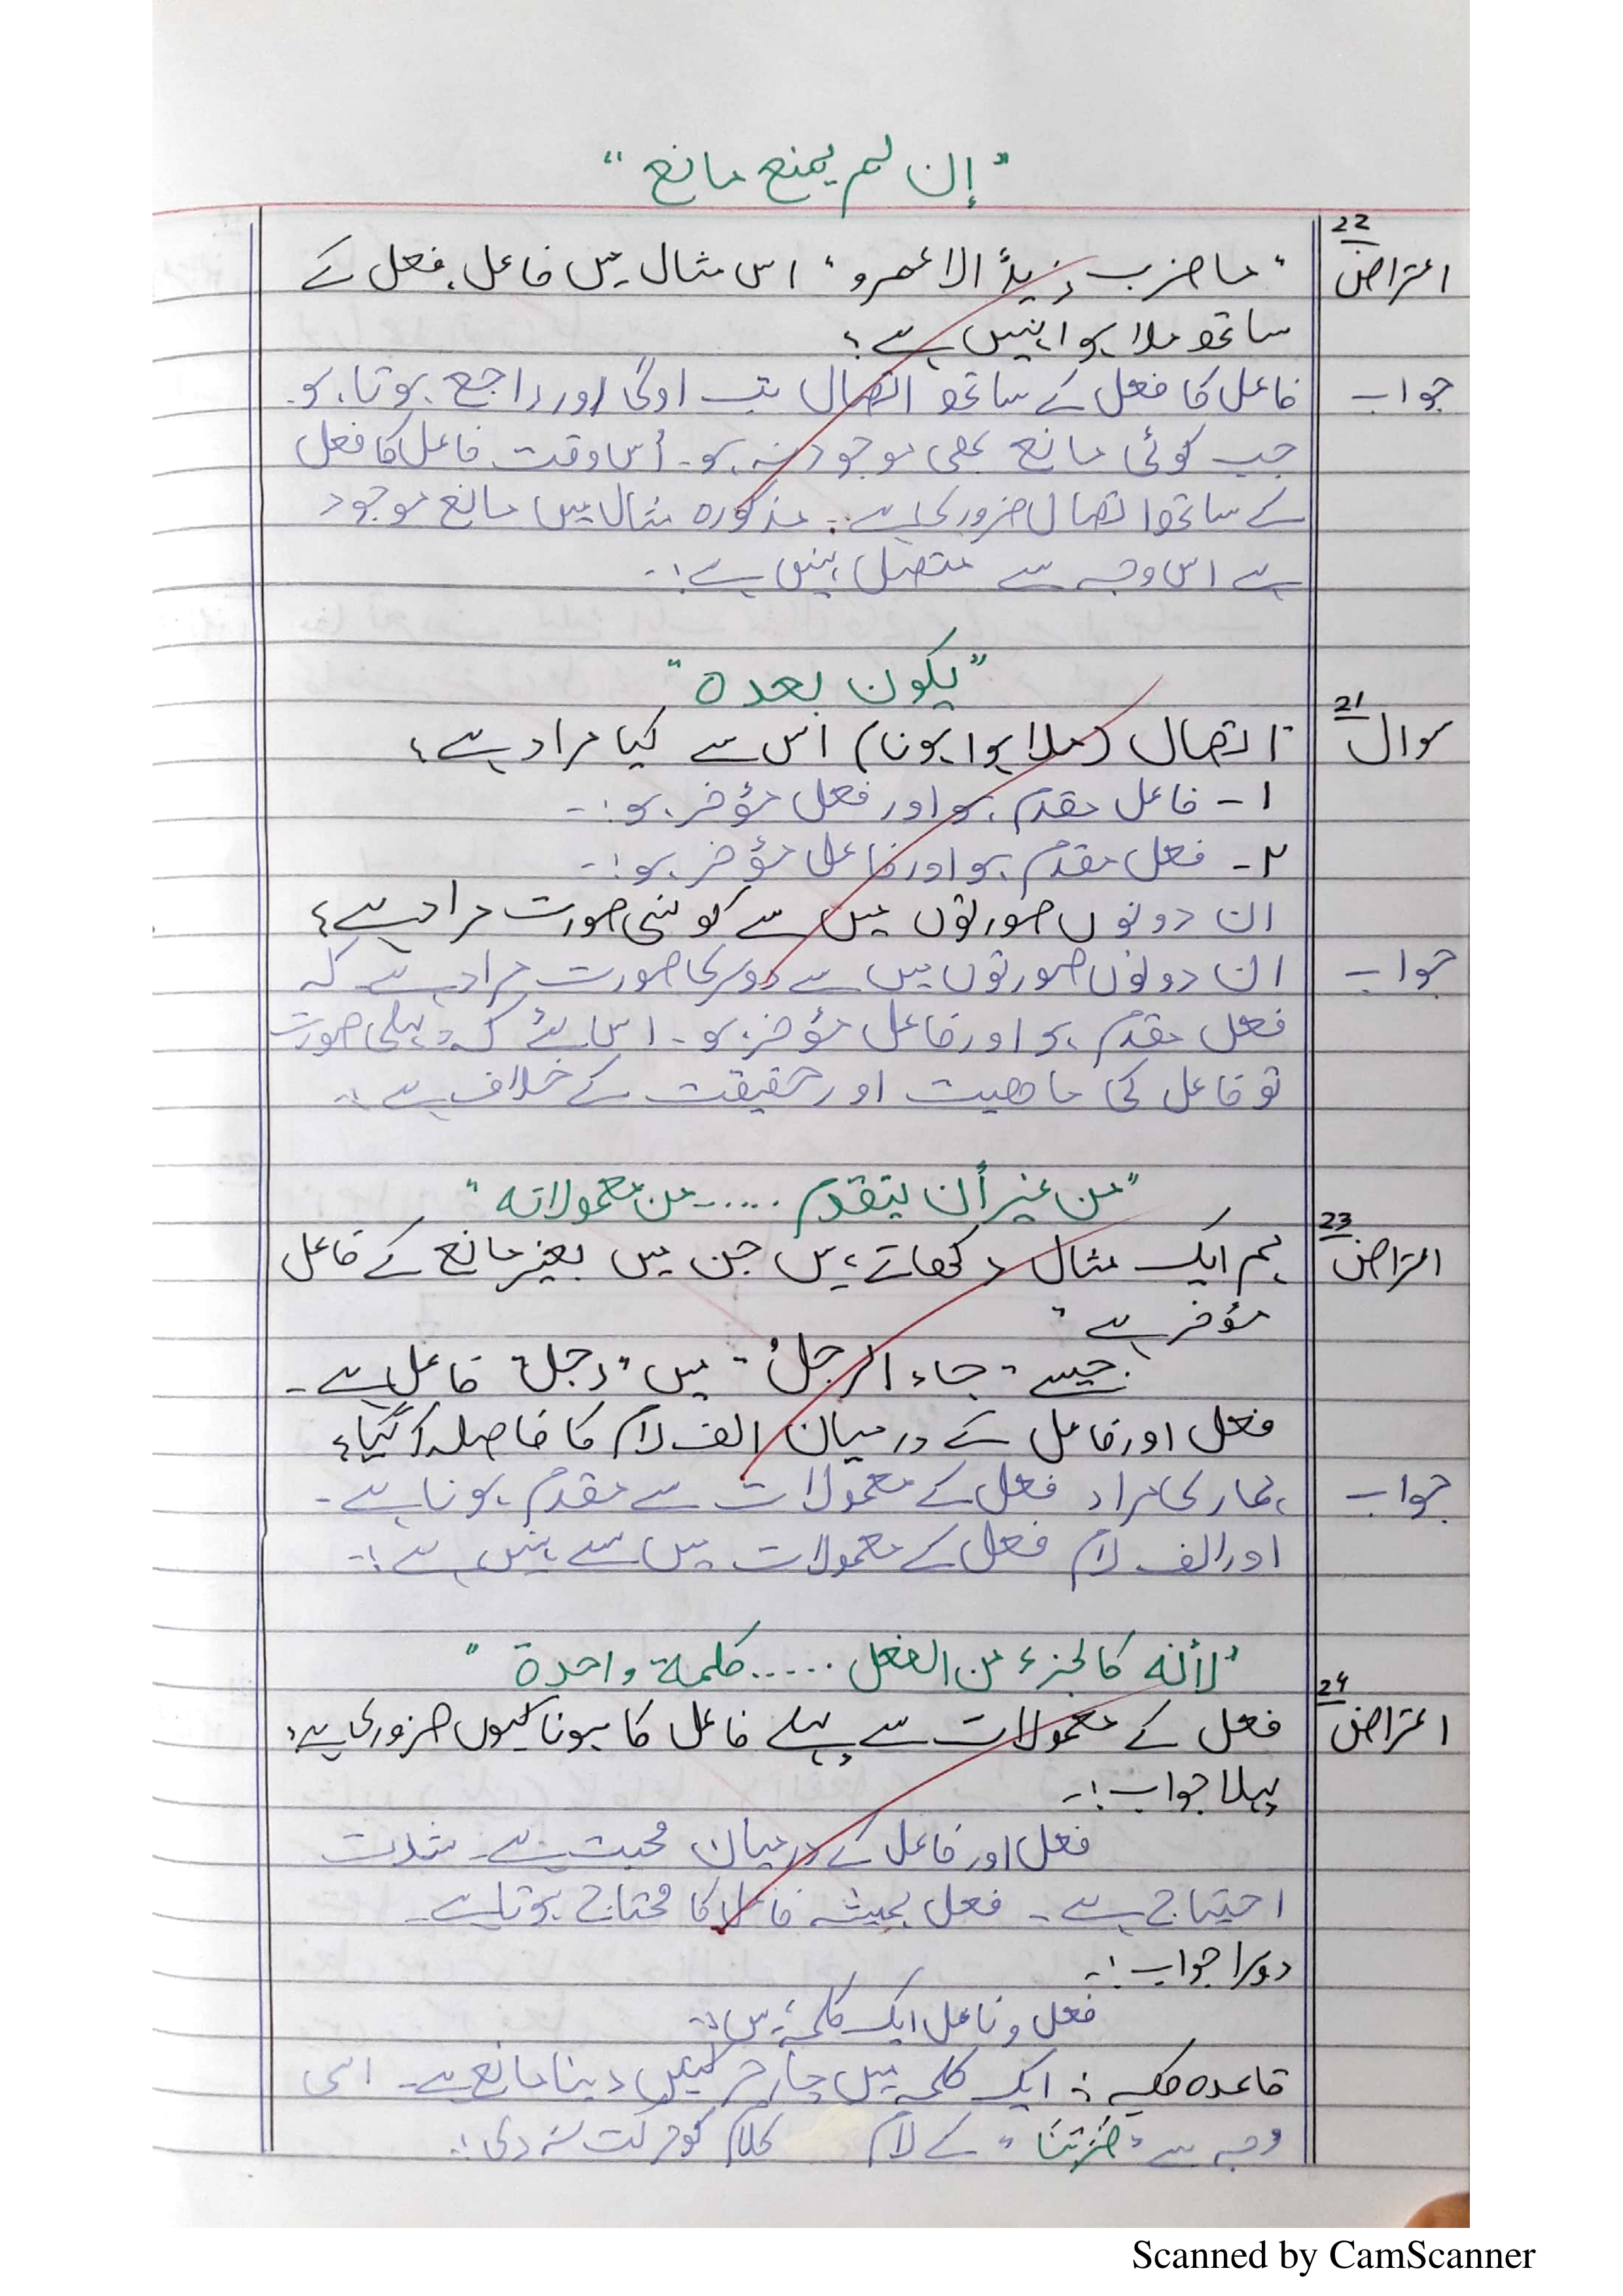 "إن لم يمنع مانع"
22
اعتراض "ما ضرب زیدًا الا عمرو" اس مثال میں فاعل، فعل کے
ساتھ ملا ہوا نہیں ہے؟
جواب فاعل کا فعل کے ساتھ اتصال تب اولیٰ اور راجع ہوتا ہو۔
جب کوئی مانع بھی موجود نہ ہو۔ اُس وقت فاعل کا فعل
کے ساتھ اتصال ضروری ہے۔ مذکورہ مثال میں مانع موجود
ہے اس وجہ سے متصل نہیں ہے:۔
"یکون بعده"
21
سوال اتصال (ملا ہوا ہونا) اس سے کیا مراد ہے؟
۱- فاعل مقدم ہو اور فعل مؤخر ہو:۔
۲- فعل مقدم ہو اور فاعل مؤخر ہو:۔
ان دونوں صورتوں میں سے کونسی صورت مراد ہے؟
جواب ان دونوں صورتوں میں سے دوسری صورت مراد ہے کہ
فعل مقدم ہو اور فاعل مؤخر ہو۔ اس لئے کہ پہلی صورت
تو فاعل کی ماھیت اور حقیقت کے خلاف ہے:۔
"من غیر أن یتقدم ..... من معمولاته"
23
اعتراض ہم ایک مثال دکھاتے ہیں جن میں بغیر مانع کے فاعل
مؤخر ہے"
جیسے "جاء الرجلُ" میں "رجل" فاعل ہے۔
فعل اور فاعل کے درمیان الف لام کا فاصلہ آگیا؟
جواب ہماری مراد فعل کے معمولات سے مقدم ہونا ہے۔
اور الف لام فعل کے معمولات میں سے نہیں ہے:۔
"لأنه كالجزء من الفعل ..... كلمة واحدة"
24
اعتراض فعل کے معمولات سے پہلے فاعل کا ہونا کیوں ضروری ہے؟
پہلا جواب:۔
فعل اور فاعل کے درمیان محبت ہے۔ شدت
احتیاج ہے۔ فعل ہمیشہ فاعل کا محتاج ہوتا ہے۔
دوسرا جواب:۔
فعل و فاعل ایک کلمہ ہیں:۔
قاعدہ ایک کلمہ میں چار حرکتیں دینا مانع ہے۔ اسی
وجہ سے "ضَرَبْنَا" کے لام کلام کو حرکت نہ دی:۔
Scanned by CamScanner